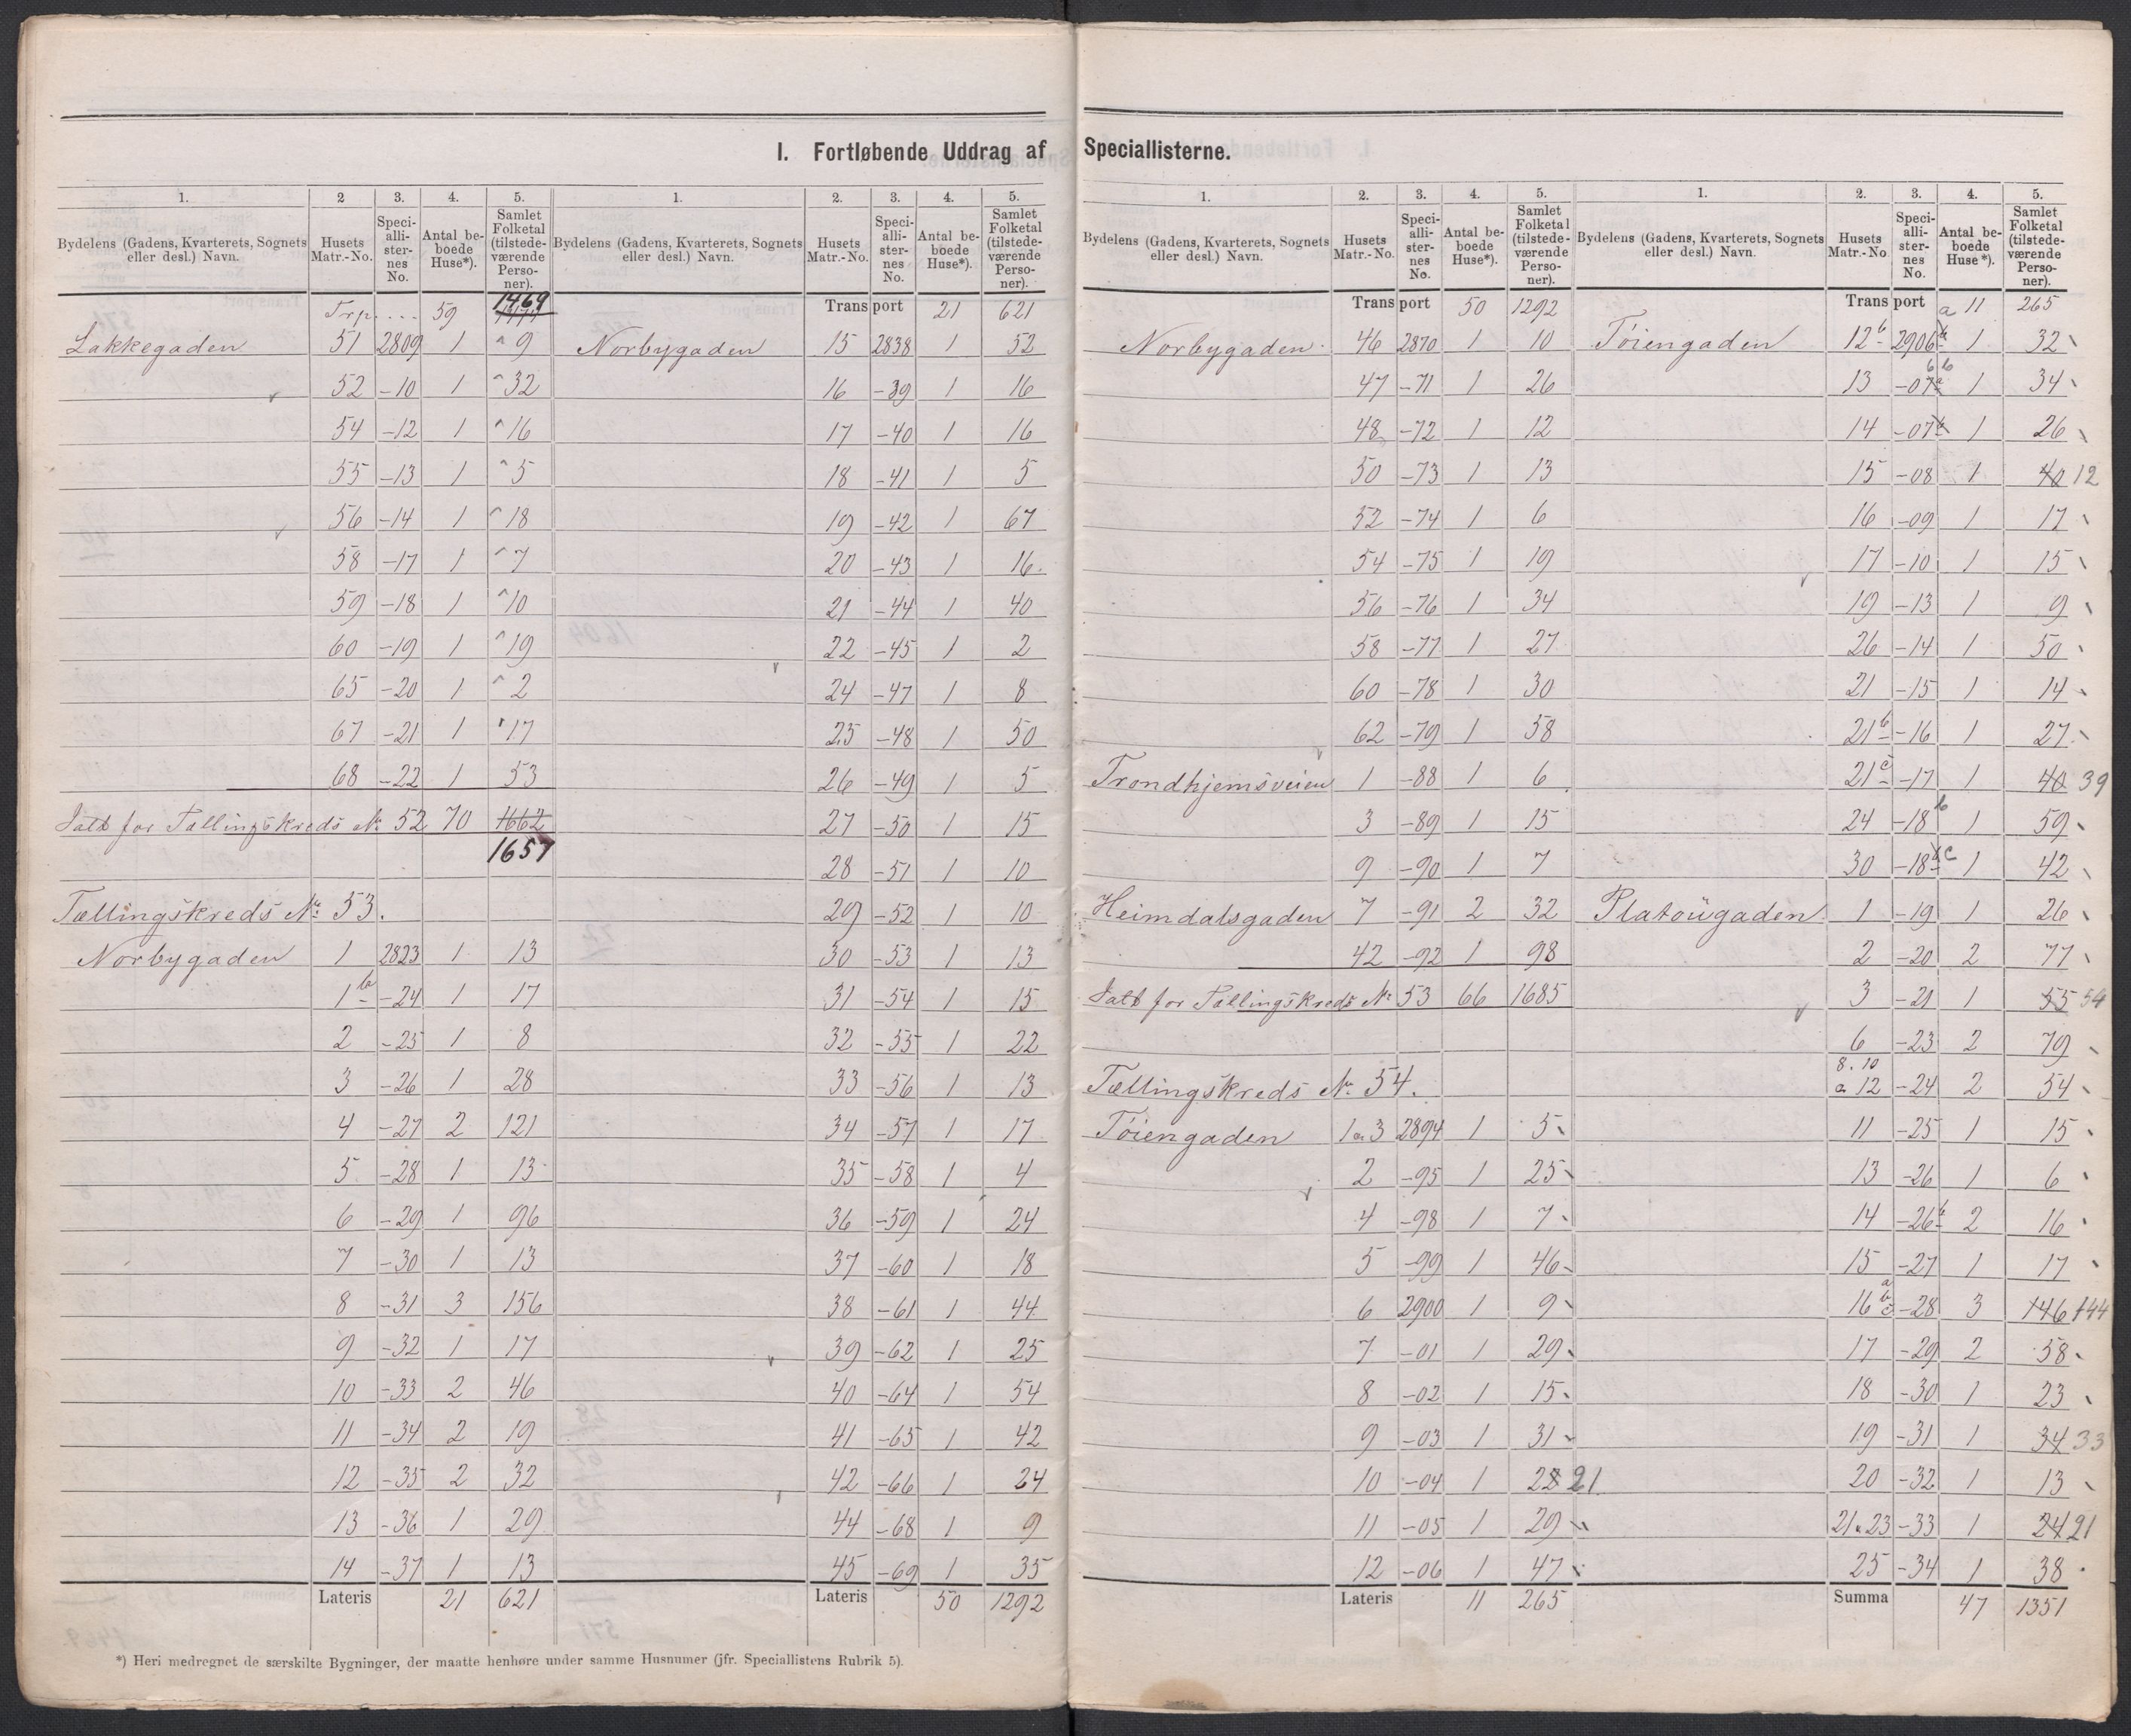 I. Fortløbende Uddrag af Speciallisterne.
1. 2 3. 4. 5.
Bydelens (Gadens, Kvarterets, Sognets eller desl.) Navn. Husets Matr.-No. Speciallisternes No. Antal beboede Huse*). Samlet Folketal (tilstedeværende Personer).
Trp. ... 59 1469
Lakkegaden 51 2809 1 9
52 -10 1 32
54 -12 1 16
55 -13 1 5
56 -14 1 18
58 -17 1 7
59 -18 1 10
60 -19 1 19
65 -20 1 2
67 -21 1 17
68 -22 1 53
Ialt for Tællingskreds No 52 70 1662
1657
Tællingskreds No 53.
Norbygaden 1 2823 1 13
1b -24 1 17
2 -25 1 8
3 -26 1 28
4 -27 2 121
5 -28 1 13
6 -29 1 96
7 -30 1 13
8 -31 3 156
9 -32 1 17
10 -33 2 46
11 -34 2 19
12 -35 2 32
13 -36 1 29
14 -37 1 13
Lateris 21 621
1. 2. 3. 4. 5.
Bydelens (Gadens, Kvarterets, Sognets eller desl.) Navn. Husets Matr.-No. Speciallisternes No. Antal beboede Huse*). Samlet Folketal (tilstedeværende Personer).
Transport 21 621
Norbygaden 15 2838 1 52
16 -39 1 16
17 -40 1 16
18 -41 1 5
19 -42 1 67
20 -43 1 16.
21 -44 1 40
22 -45 1 2
24 -47 1 8
25 -48 1 50
26 -49 1 5
27 -50 1 15
28 -51 1 10
29 -52 1 10
30 -53 1 13
31 -54 1 15
32 -55 1 22
33 -56 1 13
34 -57 1 17
35 -58 1 4
36 -59 1 24
37 -60 1 18
38 -61 1 44
39 -62 1 25
40 -64 1 54
41 -65 1 42
42 -66 1 24
44 -68 1 9
45 -69 1 35
Lateris 50 1292
*) Heri medregnet de særskilte Bygninger, der maatte henhøre under samme Husnumer (jfr. Speciallistens Rubrik 5).
1. 2. 3. 4. 5.
Bydelens (Gadens, Kvarterets, Sognets eller desl.) Navn. Husets Matr.-No. Speciallisternes No. Antal beboede Huse*). Samlet Folketal (tilstedeværende Personer).
Transport 50 1292
Norbygaden 46 2870 1 10
47 -71 1 26
48 -72 1 12
50 -73 1 13
52 -74 1 6
54 -75 1 19
56 -76 1 34
58 -77 1 27
60 -78 1 30
62 -79 1 58
Trondhjemsveien 1 -88 1 6
3 -89 1 15
9 -90 1 7
Heimdalsgaden 7 -91 2 32
42 -92 1 98
Ialt for Tællingskreds No 53 66 1685
Tællingskreds No 54.
Töiengaden 1 a 3 2894 1 5
2 -95 1 25
4 -98 1 7
5 -99 1 46
6 2900 1 9
7 -01 1 29
8 -02 1 15
9 -03 1 31
10 -04 1 28 21
11 -05 1 29
12 -06 1 47
Lateris 11 265
1. 2. 3. 4. 5.
Bydelens (Gadens, Kvarterets, Sognets eller desl.) Navn. Husets Matr.-No. Speciallisternes No. Antal beboede Huse*). Samlet Folketal (tilstedeværende Personer).
Transport 11 265
Töiengaden 12b 2906 1 32
13 -07 1 34
14 -07 1 26
15 -08 1 40 12
16 -09 1 17
17 -10 1 15
19 -13 1 9
26 -14 1 50
21 -15 1 14
21b -16 1 27
21c -17 1 40 39
24 -18b 1 59
30 -18c 1 42
Platoügaden 1 -19 1 26
2 -20 2 77
3 -21 1 55 54
6 -23 2 79
8.10 a 12 -24 2 54
11 -25 1 15
13 -26 1 6
14 -26b 2 16
15 -27 1 17
16 a b c -28 3 146 144
17 -29 2 58
18 -30 1 23
19 -31 1 34 33
20 -32 1 13
21 a 23 -33 1 24 21
25 -34 1 38
Summa 47 1351